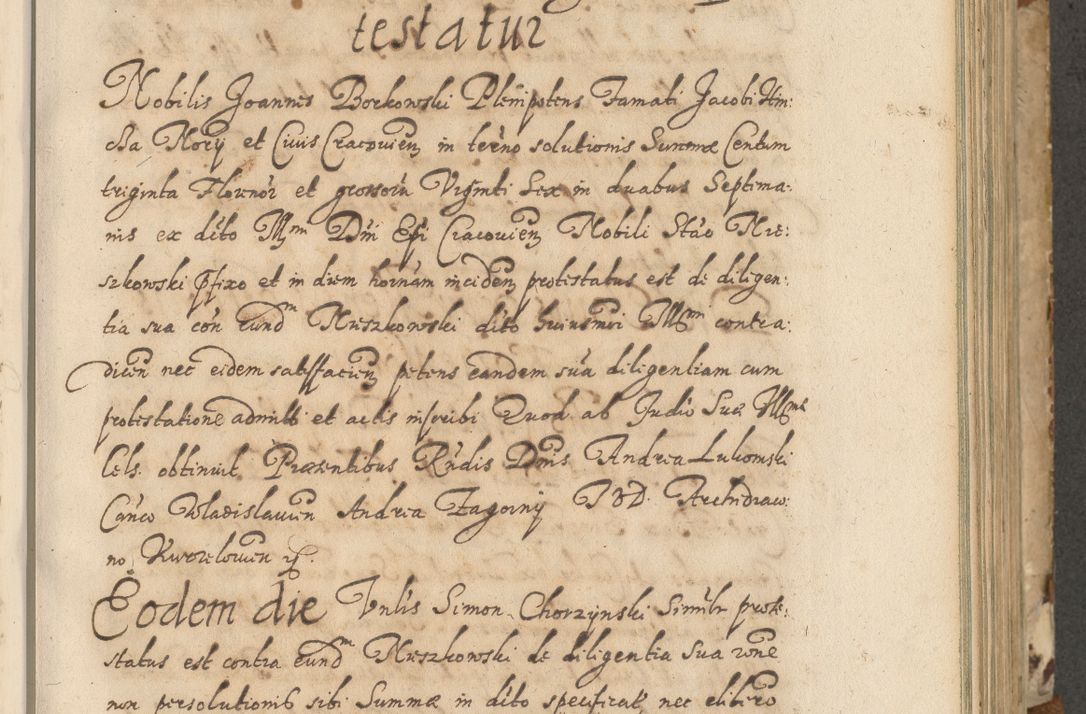 testatur
Nobilis Joannes Borkowski Plenipotens Famati Jacobi Him:
et Civis Cracovien in terno solutionis Summæ Centum
triginta Florenor et grossorũ Viginti Sex in duabus Septima:
nis ex dcto Illmi Dni Epi Cracovien Nobili Stao Mie:
szkowski pfixo et in diem hornam inciden protestatus est de diligen:
tia sua con eundm Mieszkowski dcto huiusmoi contra:
dicen nec eidem satisfacien petens eandem suã diligentiam cum
protestatione admitti et actis inscribi Quod ab Judio Suæ Illmæ
Cels. obtinuit Præsentibus Rndis Dnis Andrea Lukomski
Canco Wladislavien Andrea Zagorny I V D. Archidiaco:
no
Eodem die Vnlis Simon Chorzynski Similr prote:
status est contra eundm Mieszkowski de diligentia Sua rõne
non persolutionis sibi Summæ in dcto specificat nec libero